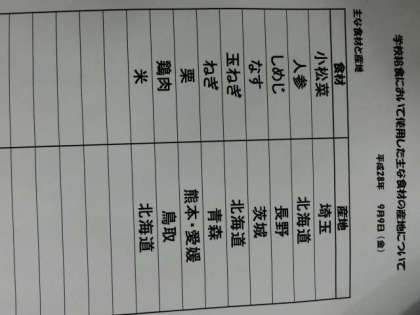 学校給食において使用した主な食材の産地について
平成28年 9月9日（金）
主な食材と産地
食材 産地
小松菜 埼玉
人参 北海道
しめじ 長野
なす 茨城
玉ねぎ 北海道
ねぎ 青森
栗 熊本・愛媛
鶏肉 鳥取
米 北海道